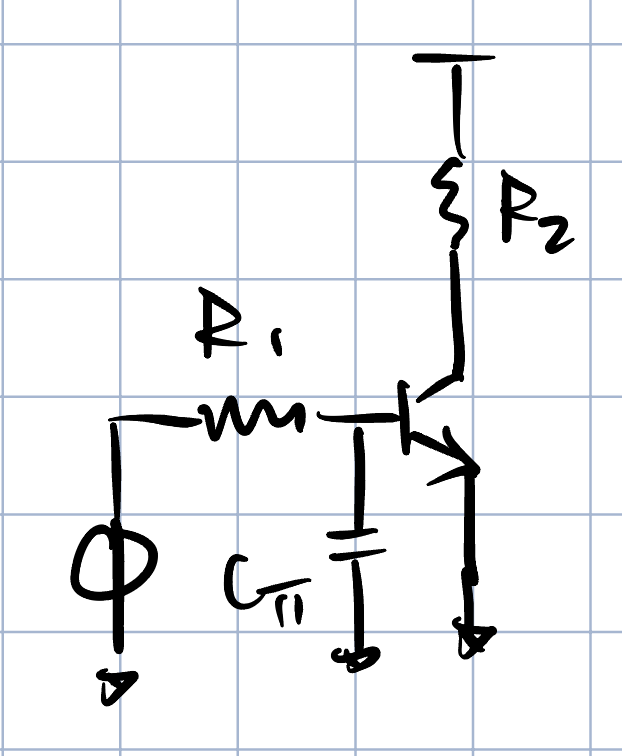 R₂
R₁
Cπ